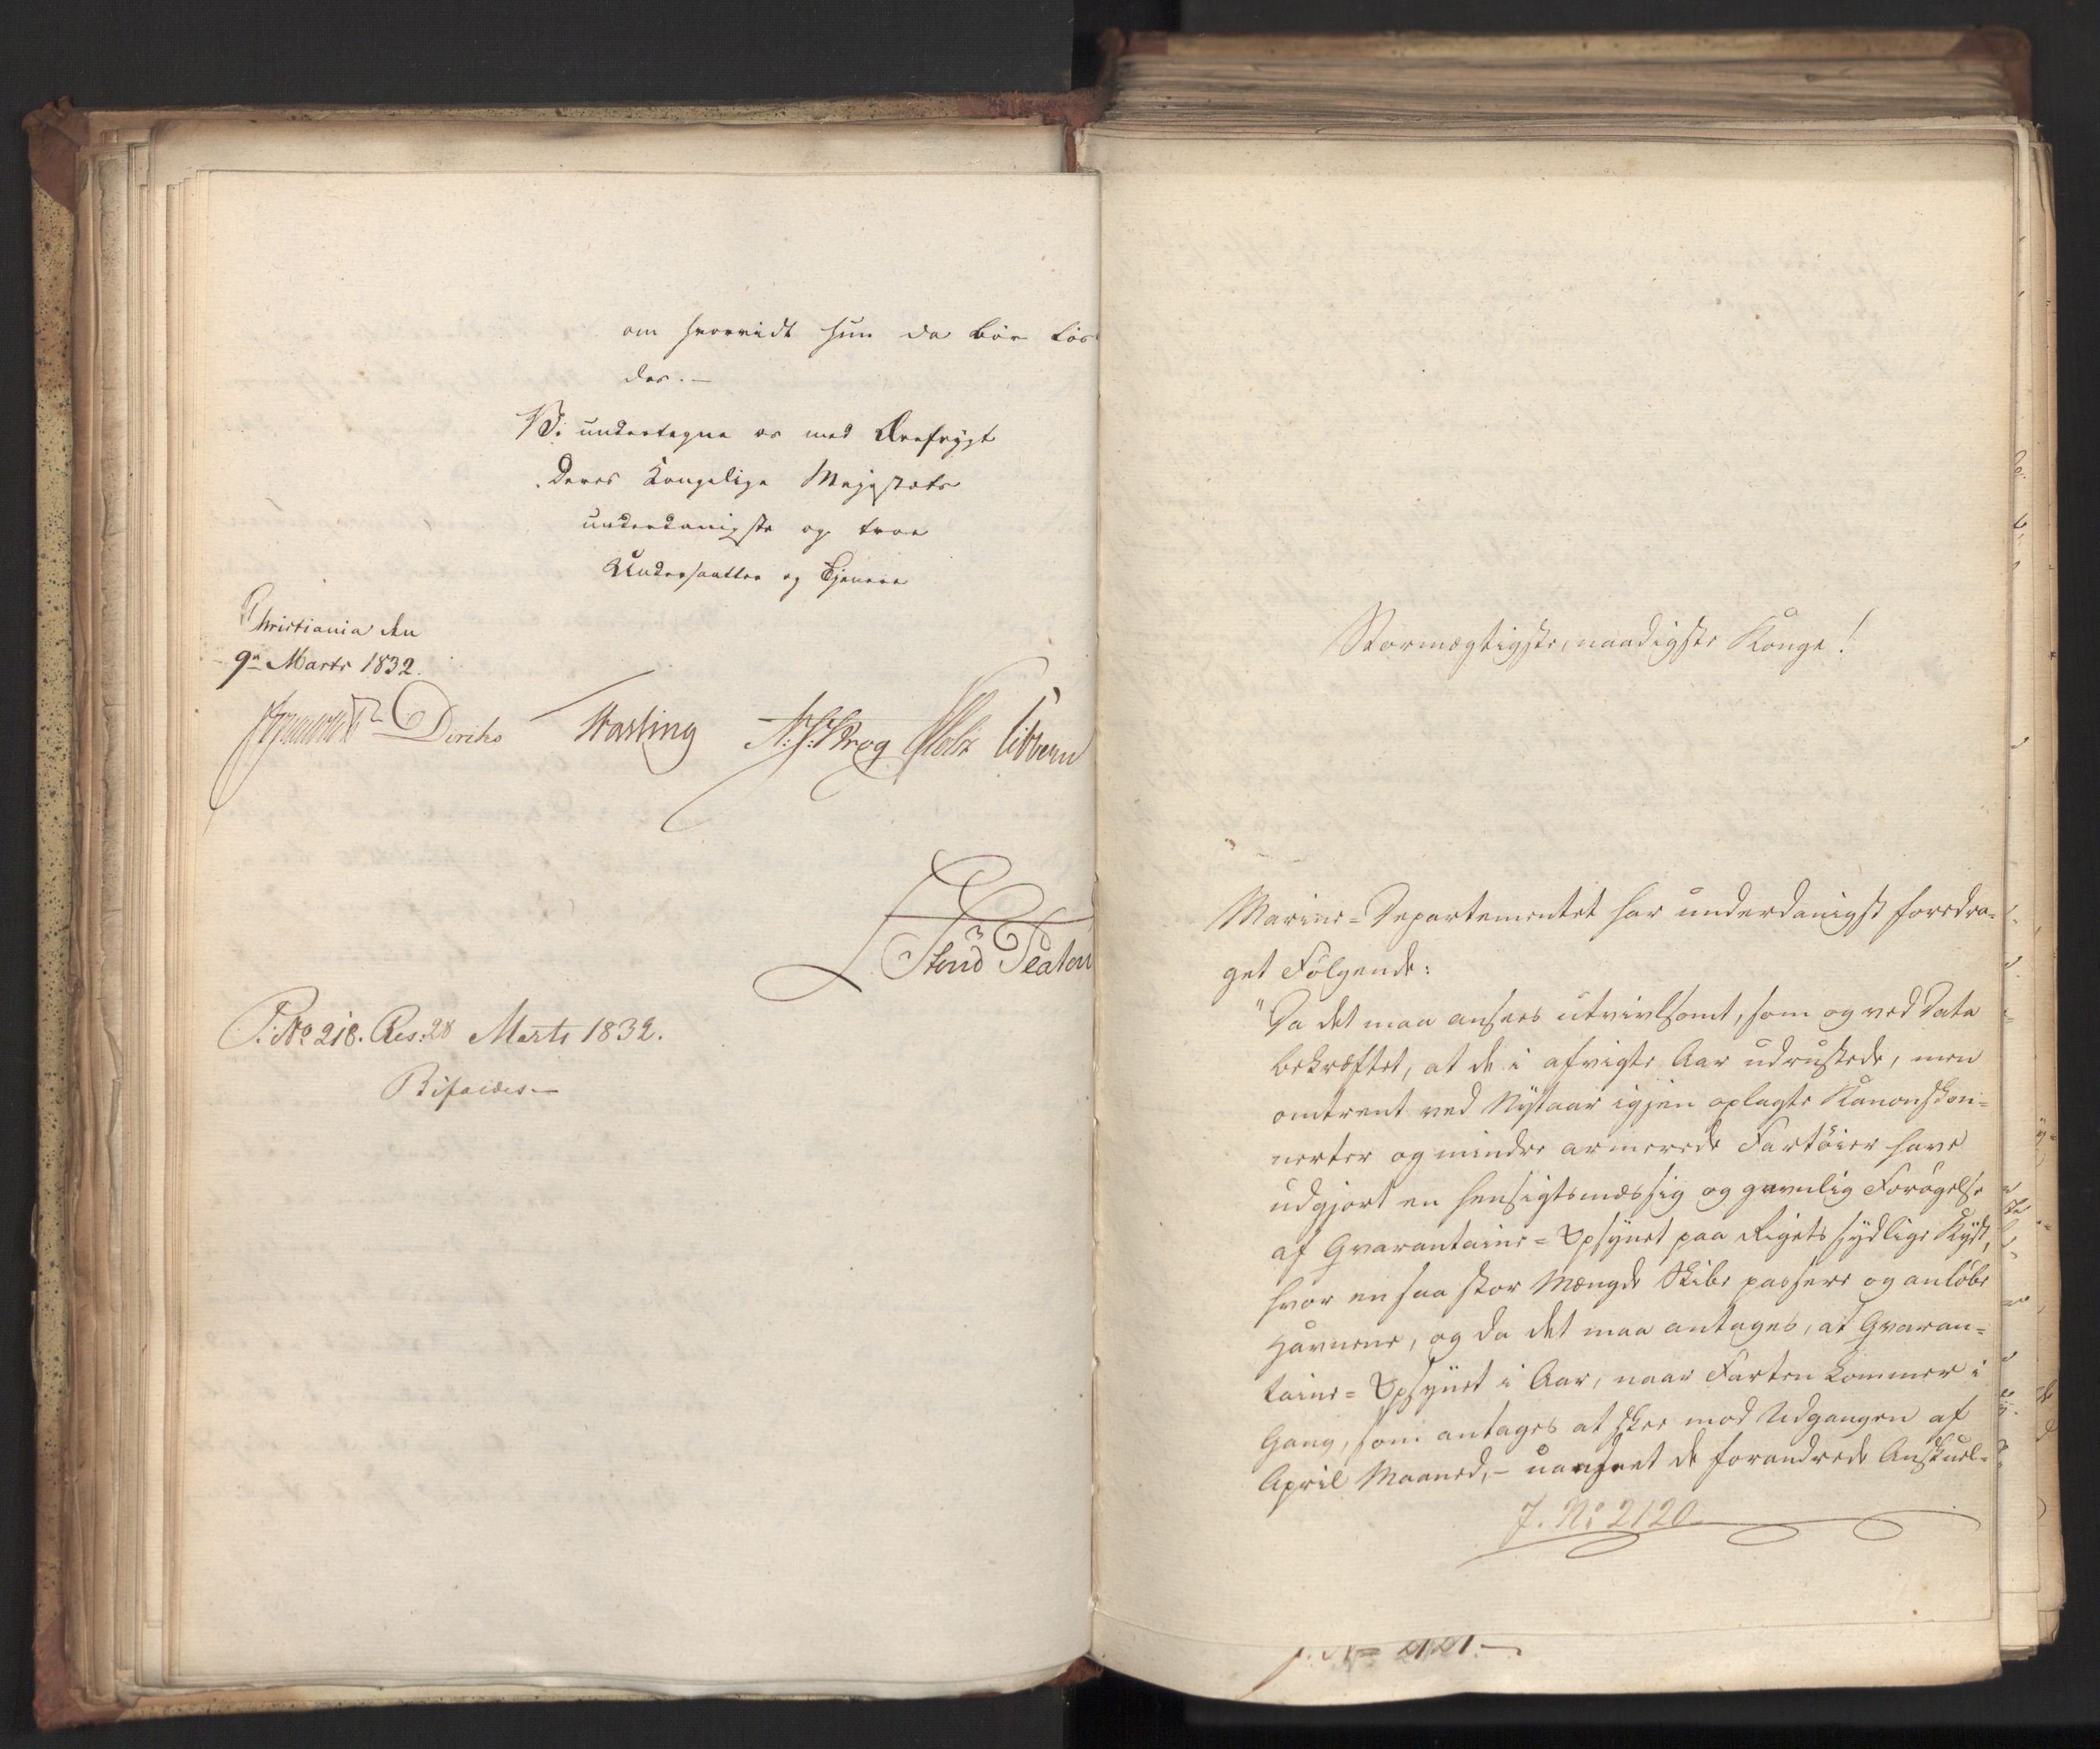 om hvorvidt hun da bør løs
des. —
Vi undertegne os med Ærefrygt
Deres Kongelige Majestæts
underdanigste og troe
Undersaatter og Tjenere
Christiania den
9n Marts 1832.
Diriks Fasting Krog Holst Vibe
P: No 218. Res: 28 Marts 1832.
Bifaldes. —
Stormægtigste, naadigste Konge!
Marine-Departementet har underdanigst foredra-
get Følgende:
"Da det maa ansees utvivlsomt, som og ved Data
bekræftet, at de i afvigte Aar udrustede, men
omtrent ved Nytaar igjen oplagte Kanonskon-
nerter og mindre armerede Fartøier have
udgjort en hensigtsmæssig og gavnlig Forøgelse
af Qvarantaine-Opsynet paa Rigets sydlige Kyst,
hvor en saa stor Mængde Skibe passere og anløbe
Havnene, og da det maa antages, at Qvaran-
taine-Opsynet i Aar, naar Farten kommer i
Gang, som antages at skee mod Udgangen af
April Maaned, – uanseet de forandrede Anskuel-
J. No 2120
J. No 2121. —